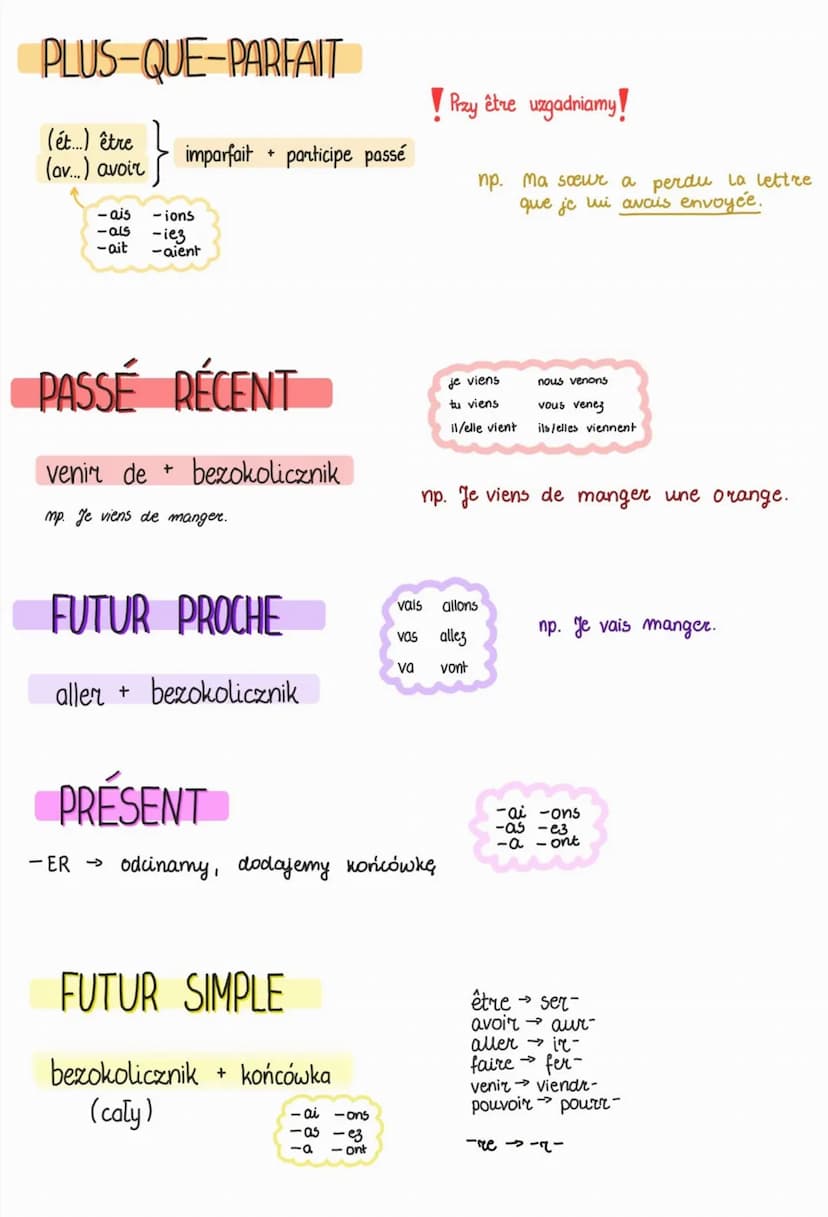 PLUS-QUE-PARFAIT
! Przy être uzgadniamy!
(ét...) être
(av...) avoir
imparfait + participe passé
-ais -ions
-ais -iez
-ait -aient
np. Ma sœur a perdu la lettre
que je lui avais envoyée.
PASSÉ RÉCENT
je viens nous venons
tu viens vous venez
il/elle vient ils/elles viennent
venir de + bezokolicznik
np. Je viens de manger.
np. Je viens de manger une orange.
FUTUR PROCHE
vais allons
vas allez
va vont
np. Je vais manger.
aller + bezokolicznik
PRÉSENT
-ai -ons
-as -ez
-a -ont
-ER → odcinamy, dodajemy końcówkę
FUTUR SIMPLE
bezokolicznik + końcówka
(cały)
-ai -ons
-as -ez
-a -ont
être → ser-
avoir → aur-
aller → ir-
faire → fer-
venir → viendr-
pouvoir → pourr-
-re → -r-